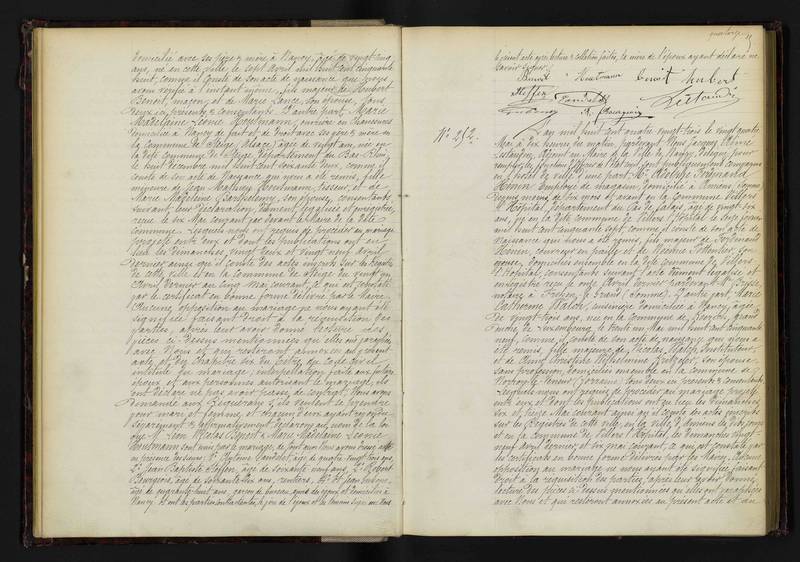 domicilié avec ses père & mère à Nancy, âgé de vingt cinq
ans, né en cette ville le sept Avril mil huit cent cinquante
huit, comme il conste de son acte de naissance que nous
avons vérifié à l'instant même, fils majeur de Hubert
Benoit, maçon, et de Marie Lance, son épouse, tous
deux ci présents & consentants. D'autre part, Marie
Madeleine Léonie Heutmann, ouvrière en chaussures
domiciliée à Nancy de fait et de droit avec ses père & mère en
la commune de Steige (Alsace) âgée de vingt ans, née en
la dite commune de Steige, département du Bas-Rhin,
le huit décembre mil huit cent soixante deux, comme il
conste de son acte de naissance qui nous a été remis, fille
mineure de Jean Mathieu Heutmann, tisseur, et de
Marie Madeleine Barthélemy, son épouse, consentants
suivant leur déclaration, dûment légalisée et enregistrée,
reçue le six Mai courant par devant le Maire de la dite
commune. Lesquels nous ont requis de procéder au mariage
projeté entre eux et dont les publications ont eu
lieu les dimanches, vingt deux et vingt neuf Avril
dernier ainsi qu'il conste des actes inscrits sur les Registres
de cette ville et en la commune de Steige du vingt un
Avril dernier au cinq Mai courant, ce qui est constaté
par le certificat en bonne forme délivré par le Maire.
Aucune opposition au mariage ne nous ayant été
signifiée faisant droit à la réquisition des
parties, après leur avoir donné lecture des
pièces ci-dessus mentionnées qu'elles ont paraphées
avec Nous et qui resteront annexées au présent
acte et du chapitre six du titre du Code Civil
intitulé du mariage; interpellation faite aux futurs
époux et aux personnes autorisant le mariage, ils
ont déclaré ne pas avoir passé de contrat. Nous avons
demandé aux Requérants s'ils veulent se prendre
pour mari et femme, et chacun d'eux ayant répondu
séparément & affirmativement, déclarons au nom de la loi
que M. Léon Nicolas Benoit & Marie Madeleine Léonie
Heutmann sont unis par le mariage, de tout quoi nous avons dressé acte
en présence des sieurs
Jean Baptiste Steffen, âgé de soixante neuf ans, Robert
Bourgeois, âgé de soixante dix ans, rentiers, & Jean
âgé de quarante huit ans, garçon de bureau, amis des époux et domiciliés à
Nancy. Et ont les parties contractantes, le père de l'époux et les témoins signé avec Nous
le présent acte après lecture & collation faites, la mère de l'épouse ayant déclaré ne
savoir signer.
Benoit Heutmann Benoit hubert
Steffen
R. Bourgeois
N° 252.
L'an mil huit cent quatre vingt-trois le vingt quatre
Mai, à dix heures du matin, pardevant Nous Jacques
adjoint au Maire de la Ville de Nancy, délégué pour
remplir les fonctions d'officier de l'État Civil, sont publiquement comparus
en l'hôtel de ville: d'une part, Mr Adolphe Fernand
employé de magasin, domicilié à Amiens, (Somme)
depuis moins de six mois et avant en la commune de Villers
l'Hôpital, département du Pas de Calais, âgé de vingt six
ans, né en la dite commune de Villers l'Hôpital le seize janvier
mil huit cent cinquante sept, comme il conste de son acte de
naissance qui nous a été remis, fils majeur de Ferdinand
son
épouse, domiciliés ensemble en la dite commune de Villers
l'Hôpital, consentants suivant l'acte dûment légalisé et
enregistré reçu le onze Avril dernier pardevant Me
notaire à (Somme). D'autre part, Marie
Catherine Maloy, cuisinière domiciliée à Nancy, âgée
de vingt-trois ans, née en la commune de Grand
Duché de Luxembourg, le trente un Mai mil huit cent cinquante
neuf, comme il conste de son acte de naissance qui nous a
été remis, fille majeure de Nicolas Maloy, Instituteur,
et de Anne son épouse,
sans profession, domiciliés ensemble en la commune de
Norroy-le-Veneur (Lorraine) tous deux ci présents & consentants.
Lesquels nous ont requis de procéder au mariage projeté
entre eux et dont les publications ont eu lieu les dimanches,
six et treize Mai courant ainsi qu'il conste des actes inscrits
sur les Registres de cette ville, en la ville d'Amiens les dits jours
et en la commune de Villers l'Hôpital, les dimanches vingt-
neuf Avril dernier et six mai courant, ce qui est constaté par
les certificats en bonne forme délivrés par les Maires. Aucune
opposition au mariage ne nous ayant été signifiée, faisant
droit à la réquisition des parties, après leur avoir donné
lecture des pièces ci dessus mentionnées qu'elles ont paraphées
avec Nous et qui resteront annexées au présent acte et du